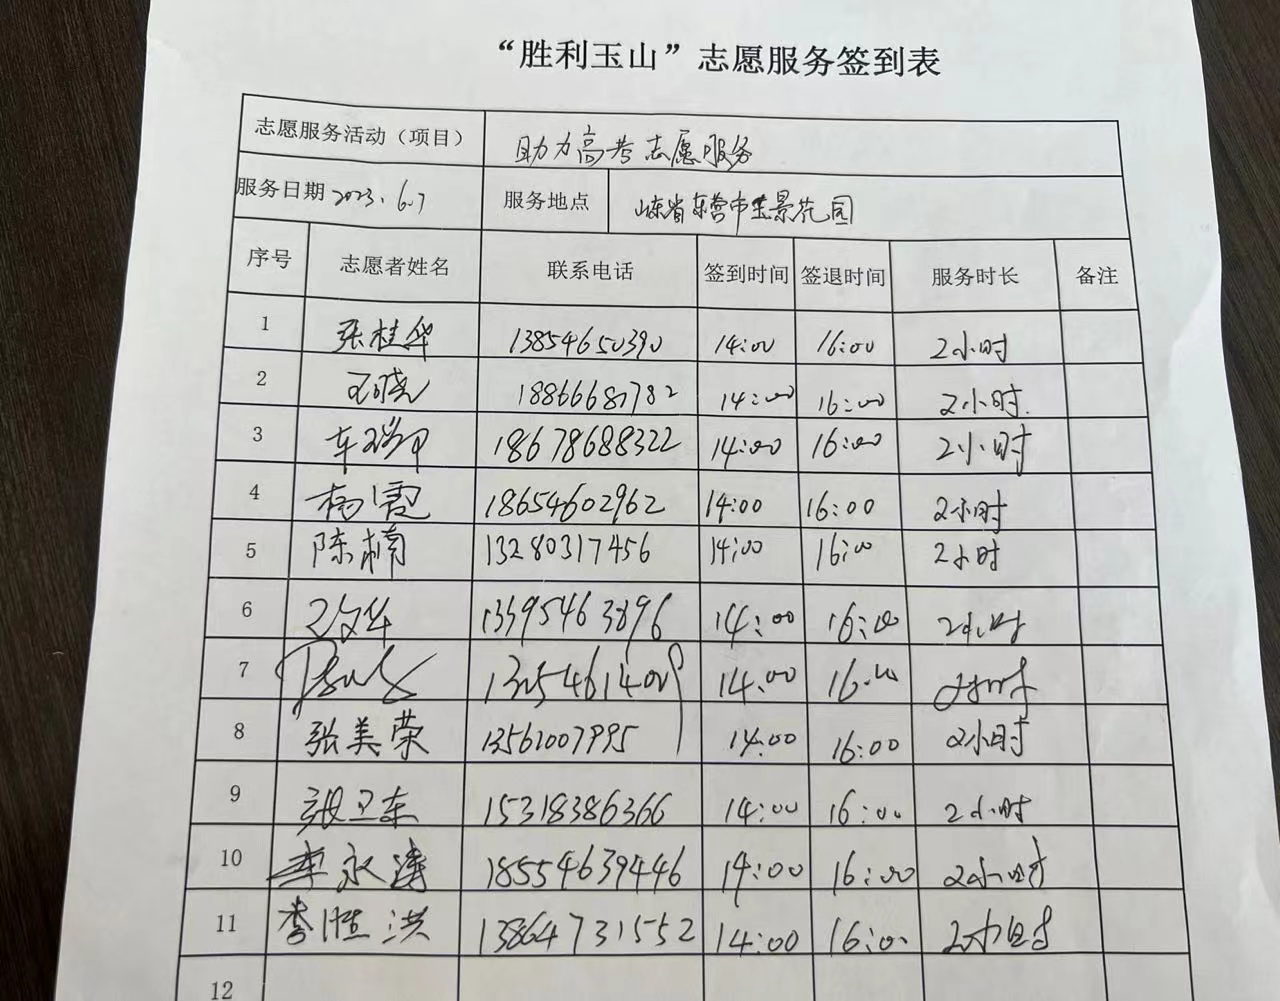 “胜利玉山”志愿服务签到表
志愿服务活动（项目） 助力高考志愿服务
服务日期 2023.6.7 服务地点 山东省东营市宝景花园
序号 志愿者姓名 联系电话 签到时间 签退时间 服务时长 备注
1 张桂华 13854650390 14:00 16:00 2小时
2 王晓 14:00 16:00 2小时
3 18678688322 14:00 16:00 2小时
4 杨霞 18654602962 14:00 16:00 2小时
5 陈楠 13280317456 14:00 16:00 2小时
6 13395463896 14:00 16:00 2小时
7 14:00 16:00 2小时
8 张美荣 13561007995 14:00 16:00 2小时
9 张卫东 15318386366 14:00 16:00 2小时
10 李永涛 18554639446 14:00 16:00 2小时
11 李胜洪 13864731552 14:00 16:00 2小时
12